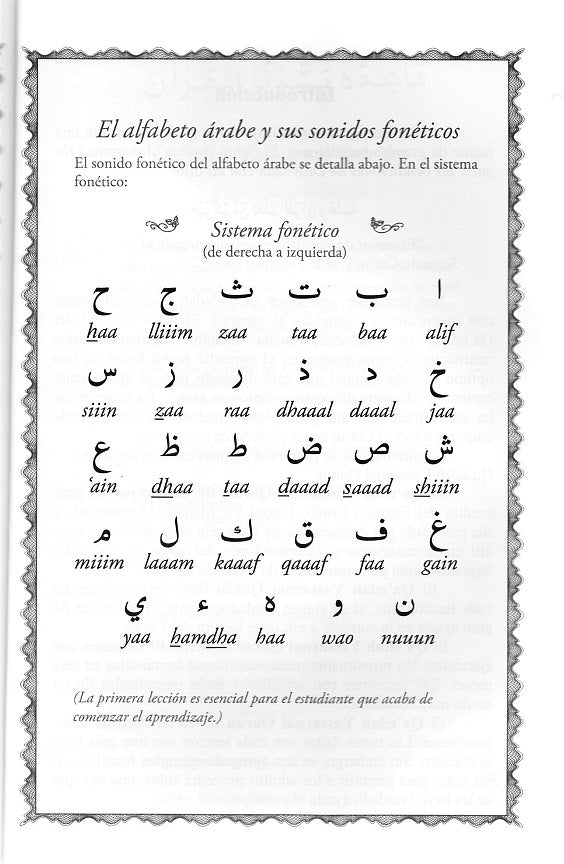 El alfabeto árabe y sus sonidos fonéticos
El sonido fonético del alfabeto árabe se detalla abajo. En el sistema
fonético:
Sistema fonético
(de derecha a izquierda)
ا ب ت ث ج ح
haa lliiim zaa taa baa alif
خ د ذ ر ز س
siiin zaa raa dhaaal daaal jaa
ش ص ض ط ظ ع
‘ain dhaa taa daaad saaad shiiin
غ ف ق ك ل م
miiim laaam kaaaf qaaaf faa gain
ن و ه ء ي
yaa hamdha haa wao nuuun
(La primera lección es esencial para el estudiante que acaba de
comenzar el aprendizaje.)